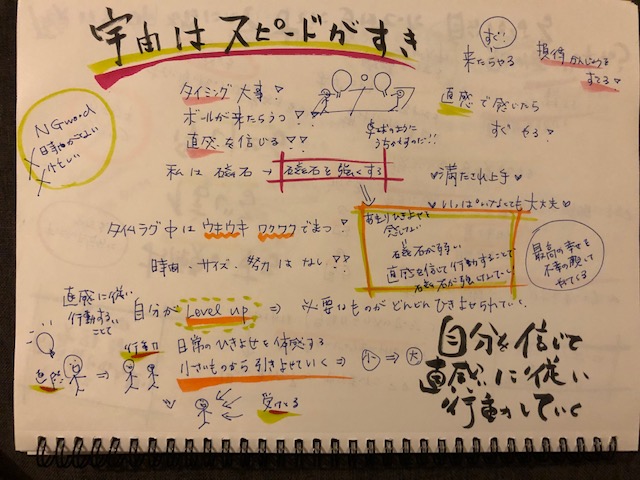 宇宙はスピードがすき
すぐ!
来たらやる
損得かんじょうを
すてる!
NGword
時間がない
忙しい
タイミング大事!
ボールが来たらうつ!!
直感を信じる!!
卓球のように
うちかえすのだ!!
直感で感じたら
すぐやる!
私は磁石→磁石を強くする
満たされ上手
いい人じゃなくても大丈夫
タイムラグ中はウキウキワクワクでまつ!
時間・サイズ・努力はない!!
あまりひきよせを
感じない
磁石が弱い
直感を信じて行動することで
磁石が強くなっていく
最高の幸せを
不幸の顔して
やってくる
直感に従い
行動する
ことで
自分が Level up ⇒ 必要なものがどんどんひきよせられていく
直感
⇒
行動
日常のひきよせを体感する
小さいものから引きよせていく⇒ 小⇒大
受けとる
自分を信じて
直感に従い
行動していく